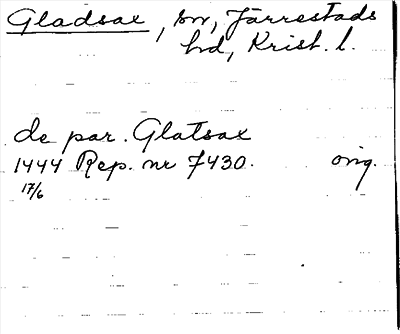 Gladsax, sn, Järrestads
hd, Krist. l.
de par. Glatsax
1444 Rep. nr 7430. orig.
17/6